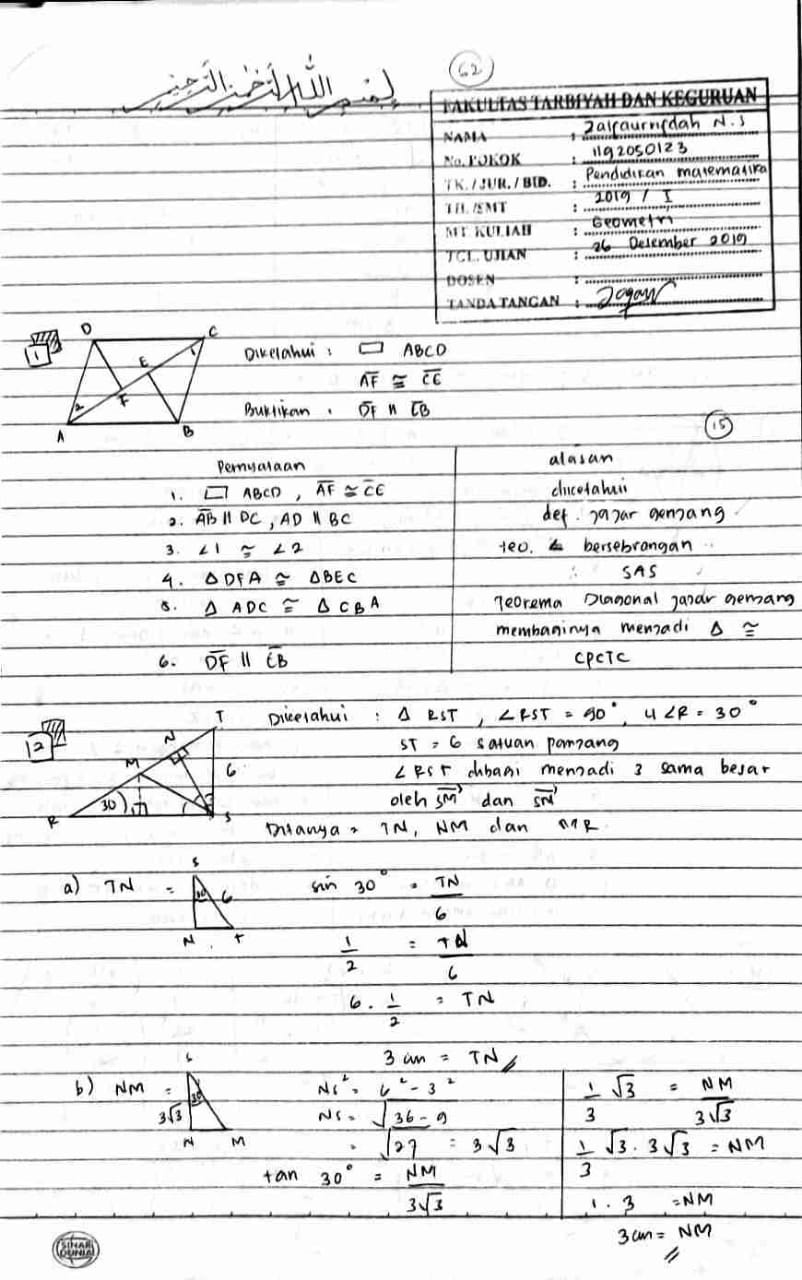 بسم الله الرحمن الرحيم
62
FAKULTAS TARBIYAH DAN KEGURUAN
NAMA : Zalfaurrifdah N.S
No. POKOK : 1192050123
TK. / JUR. / BID. : Pendidikan matematika
TH. /SMT : 2019 / I
MT KULIAH : Geometri
TGL. UJIAN : 26 Desember 2019
DOSEN :
TANDA TANGAN :
1
D C E F A B 1 2
Diketahui : ▭ ABCD
AF ≅ CE
Buktikan : DF // EB
15
Pernyataan alasan
1. ▭ ABCD , AF ≅ CE diketahui
2. AB // DC , AD // BC def. jajar genjang
3. ∠1 ≅ ∠2 teo. ∠ bersebrangan
4. Δ DFA ≅ ΔBEC SAS
5. Δ ADC ≅ Δ CBA Teorema Diagonal jajar genjang
membaginya menjadi Δ ≅
6. DF // EB CPCTC
2
T N M R S 30 6
Diketahui : Δ RST , ∠RST = 90°, u ∠R = 30°
ST = 6 satuan panjang
∠RST dibagi menjadi 3 sama besar
oleh SM dan SN
Ditanya = TN, NM dan MR
a) TN =
S 30 6 N T
sin 30° = TN/6
1/2 = TN/6
6 . 1/2 = TN
3 cm = TN //
b) NM =
S 30 3√3 N M
NS² = 6² - 3²
NS = √36 - 9
= √27 = 3√3
tan 30° = NM/3√3
1/3 √3 = NM/3√3
1/3 √3 . 3√3 = NM
1 . 3 = NM
3 cm = NM //
SINAR DUNIA